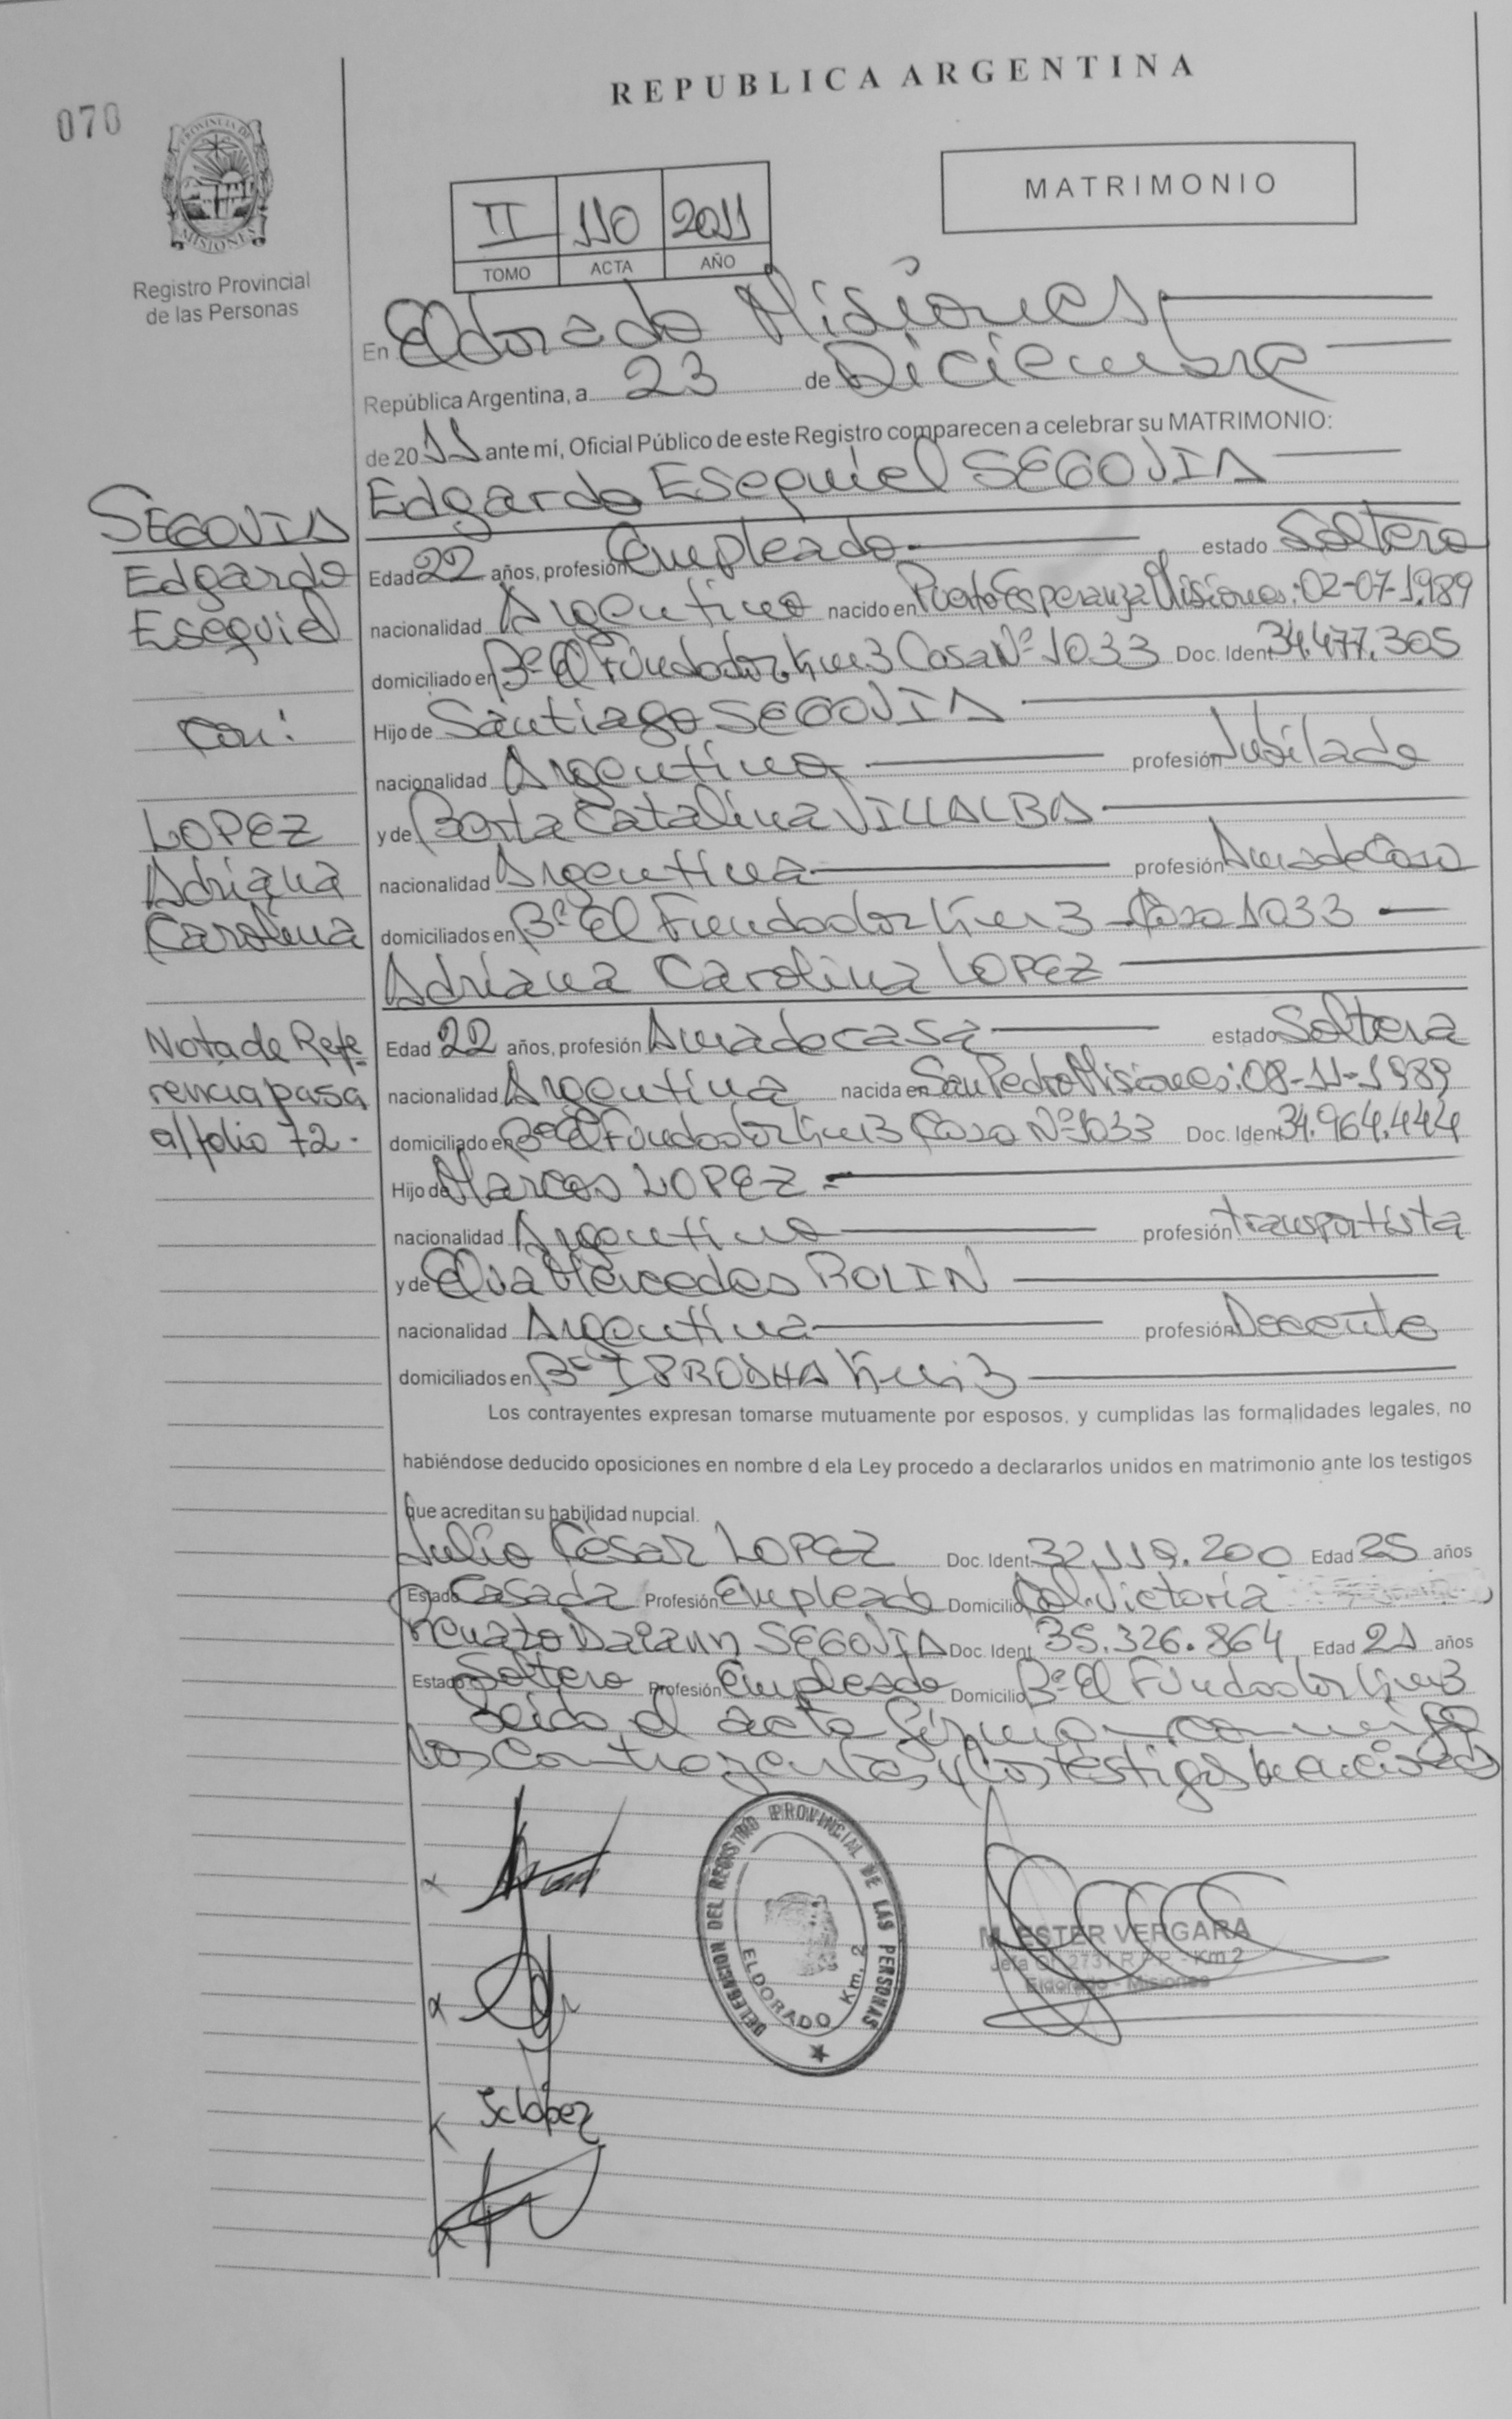 REPUBLICA ARGENTINA
070
PROVINCIA DE MISIONES
Registro Provincial
de las Personas
MATRIMONIO
II 110 2011
TOMO ACTA AÑO
En Eldorado Misiones,
República Argentina, a 23 de Diciembre
de 2011 ante mí, Oficial Público de este Registro comparecen a celebrar su MATRIMONIO:
Edgardo Esequiel SEGOVIA
Edad 22 años, profesión Empleado estado Soltero
nacionalidad Argentino nacido en Puerto Esperanza Misiones: 02-07-1989
domiciliado en Bº El Fundador Km 3 Casa Nº 1033 Doc. Ident 34.477.305
Hijo de Santiago SEGOVIA
nacionalidad Argentino profesión Jubilado
y de Berta Catalina VILLALBA
nacionalidad Argentina profesión Ama de Casa
domiciliados en Bº El Fundador Km 3 Casa 1033
Adriana Carolina LOPEZ
Edad 22 años, profesión Ama de casa estado Soltera
nacionalidad Argentina nacida en San Pedro Misiones: 08-11-1989
domiciliado en Bº El Fundador Km 3 Casa Nº 1033 Doc. Ident 34.964.444
Hijo de Marcos LOPEZ
nacionalidad Argentino profesión transportista
y de Elva Mercedes ROLIN
nacionalidad Argentina profesión Docente
domiciliados en Bº IPRODHA Km 3
Los contrayentes expresan tomarse mutuamente por esposos, y cumplidas las formalidades legales, no
habiéndose deducido oposiciones en nombre d ela Ley procedo a declararlos unidos en matrimonio ante los testigos
que acreditan su habilidad nupcial.
Julio César LOPEZ Doc. Ident. 32.119.200 Edad 25 años
Estado Casada Profesión Empleado Domicilio Col. Victoria
Renato SEGOVIA Doc. Ident 35.326.864 Edad 21 años
Estado Soltero Profesión Empleado Domicilio Bº El Fundador Km 3
Leido el acta firman conmigo
los contrayentes y los testigos
SEGOVIA
Edgardo
Esequiel
con:
LOPEZ
Adriana
Carolina
Nota de Refe-
rencia pasa
a/folio 72.
DELEGACION DEL REGISTRO PROVINCIAL DE LAS PERSONAS
ELDORADO Km. 2
M. ESTER VERGARA
Jefa Of. 2731 R.P.P. - Km 2
Eldorado - Misiones
JcLópez